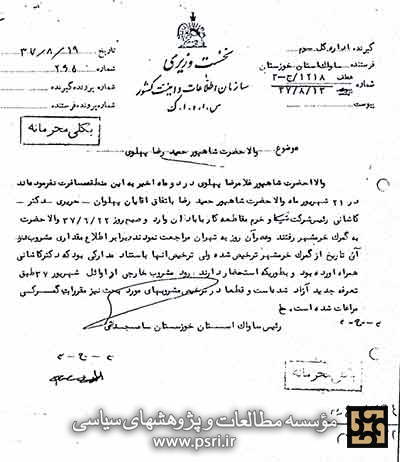 نخست وزیری
سازمان اطلاعات و امنیت کشور
س. ا. و. ا. ک
گیرنده اداره کل سوم
فرستنده ساواک استان خوزستان
شماره
عطف ۱۲۱۸/ج-۲
۳۷/۸/۱۳
پیوست
تاریخ ۳۷/۸/۱۹
شماره
شماره پرونده گیرنده
شماره پرونده فرستنده
بکلی محرمانه
موضوع والا حضرت شاهپور حمید رضا پهلوی
والا حضرت شاهپور غلامرضا پهلوی در دو ماه اخیر به این منطقه مسافرت نفرموده‌اند
در ۲۱ شهریور ماه والاحضرت شاهپور حمید رضا باتفاق آقایان پهلوان – حریری – دکتر
کاشانی رئیس شرکت و خرم مقاطعه کار بآبادان وارد و صبح روز ۳۷/۶/۲۲ والا حضرت
به گمرک خرمشهر رفتند و عصر آن روز به تهران مراجعت نمودند برابر اطلاع مقداری مشروب در
آن تاریخ از گمرک خرمشهر ترخیص شده ولی ترخیص آنها باستناد مدارکی بود که دکتر کاشانی
همراه آورده بود و بطوریکه استحضار دارند ورود مشروب خارجی از اوائل شهریور ۳۷ طبق
تعرفه جدید آزاد شده است و قطعا در ترخیص مشروبهای مورد بحث نیز مقررات گمرکی
مراعات شده است. خ
رئیس ساواک استان خوزستان ساجدی
بکلی محرمانه
مؤسسه مطالعات و پژوهشهای سیاسی
www.psri.ir